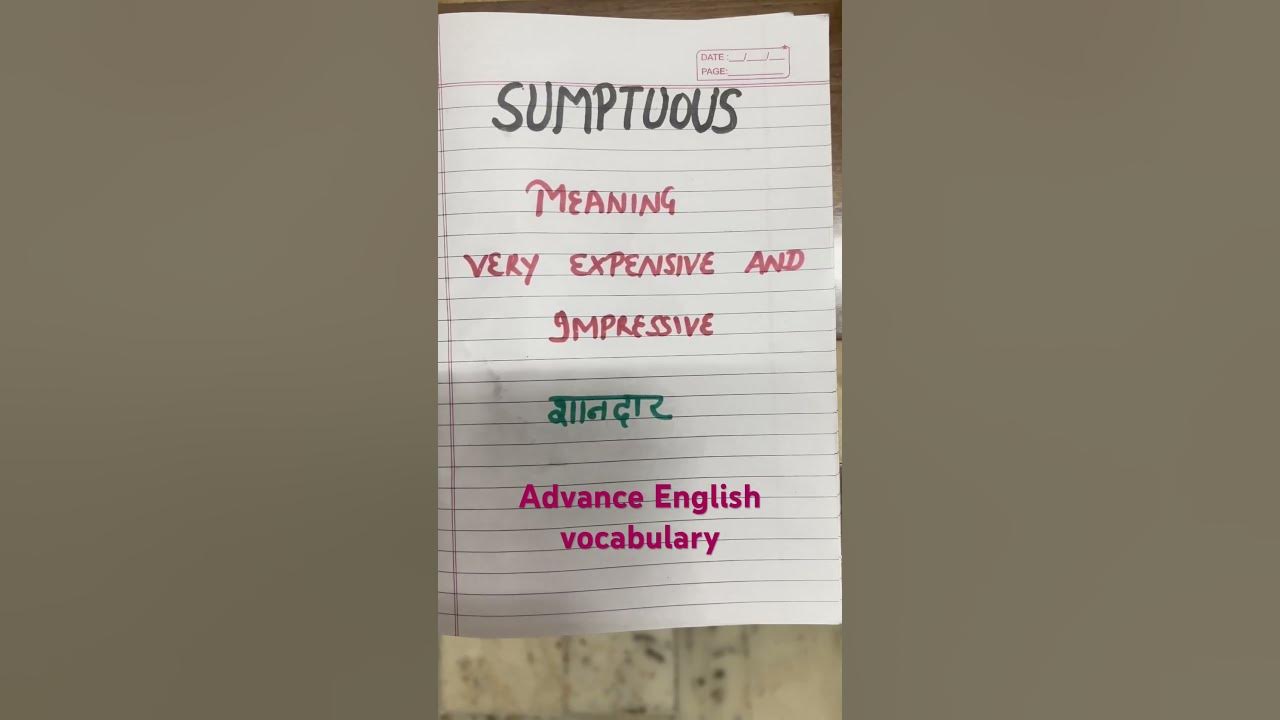 DATE :__/__/__
PAGE:________
SUMPTUOUS
MEANING
VERY EXPENSIVE AND
IMPRESSIVE
शानदार
Advance English
vocabulary